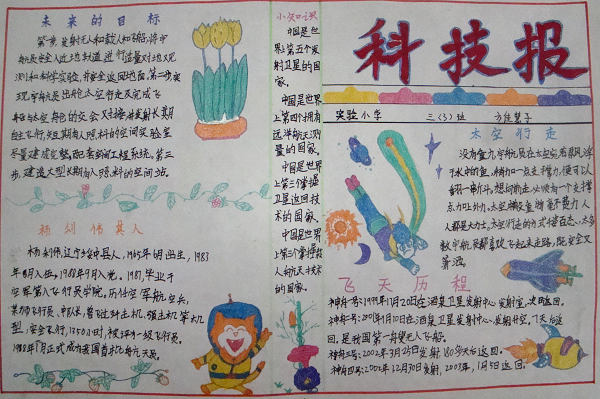 未来的目标
第一步发射无人和载人飞船,将宇
航员安全人近地轨道进行适量对地观
测和科学实验,并安全返回地面。第二步实
现宇航员出舱太空行走及完成飞
船与太空舱的交会对接并发射长期
自主飞行,短期有人照料的空间实验室
尽量建成完整配套的工程系统。第三
步、建造大型长期有人照料的空间站。
杨利伟其人
杨利伟,辽宁绥中县人,1965年6月出生,1983
年8月入伍。1988年9月入党。1987,毕业于
空军第八飞行员学院。历任空军航空兵
某师飞行员、中队长,曾飞过歼击机、强击机等机
型,安全飞行1350小时,被评为一级飞行员。
1998年1月正式成为我国首批航天员。
小知识
中国是世
界上第五个发
射卫星的国
家。
中国是世界
上第四个拥有
远洋航天测
量的国家。
中国是世界
上第三个掌握
卫星返回技
术的国家。
中国是世界
上第三个掌握载
人航天技术
的国家。
科技报
实验小学 三(3)班 方佳慧子
太空行走
没有重力,宇航员在太空宛若乘风,浮
于水中的鱼,稍稍加一点支撑力,便可以
翻一串斤斗。想向前走,必须有一个支撑
点力口外力。太空
人都是大力士,太空行走的方式千姿百态,大多
数宇航员都喜欢飞起来走路,既安全又
算洒。
飞天历程
神舟一号:1999年11月20日在酒泉卫星发射中心发射,次日返回。
神舟二号:2001年1月10日在酒泉卫星发射中心发射升空。7天后返
回,是我国第一艘无人飞船。
神舟三号:2002年3月25日发射180多天后返回。
神舟四号:2002年12月30日发射,2003年,1月5返回。